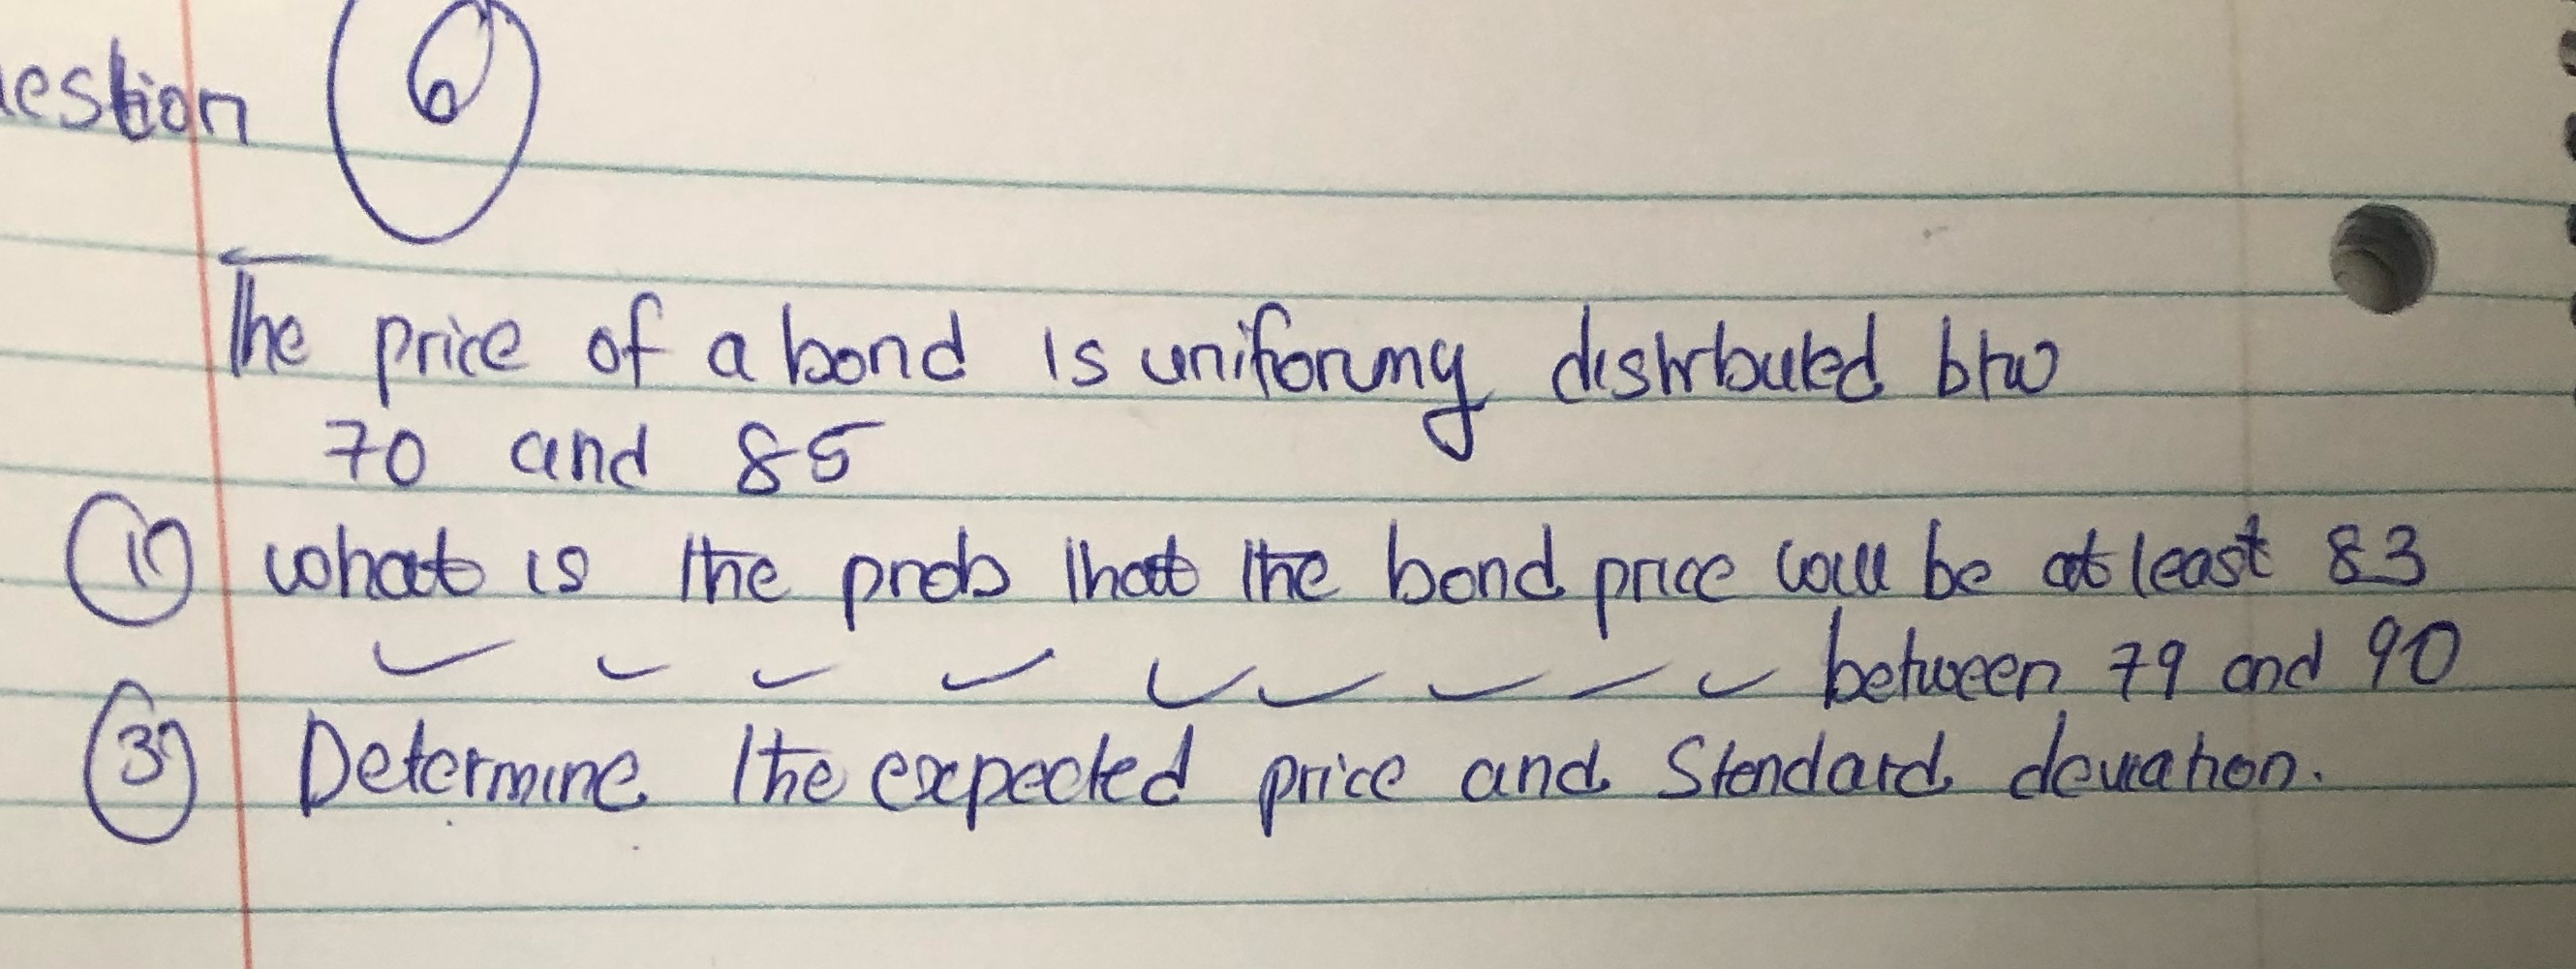 estion 6
The price of a bond is uniformy distrbuted btw
70 and 85
1) what is the prob that the bond price will be at least 83
between 79 and 90
3) Determine the expected price and Standard deviation.